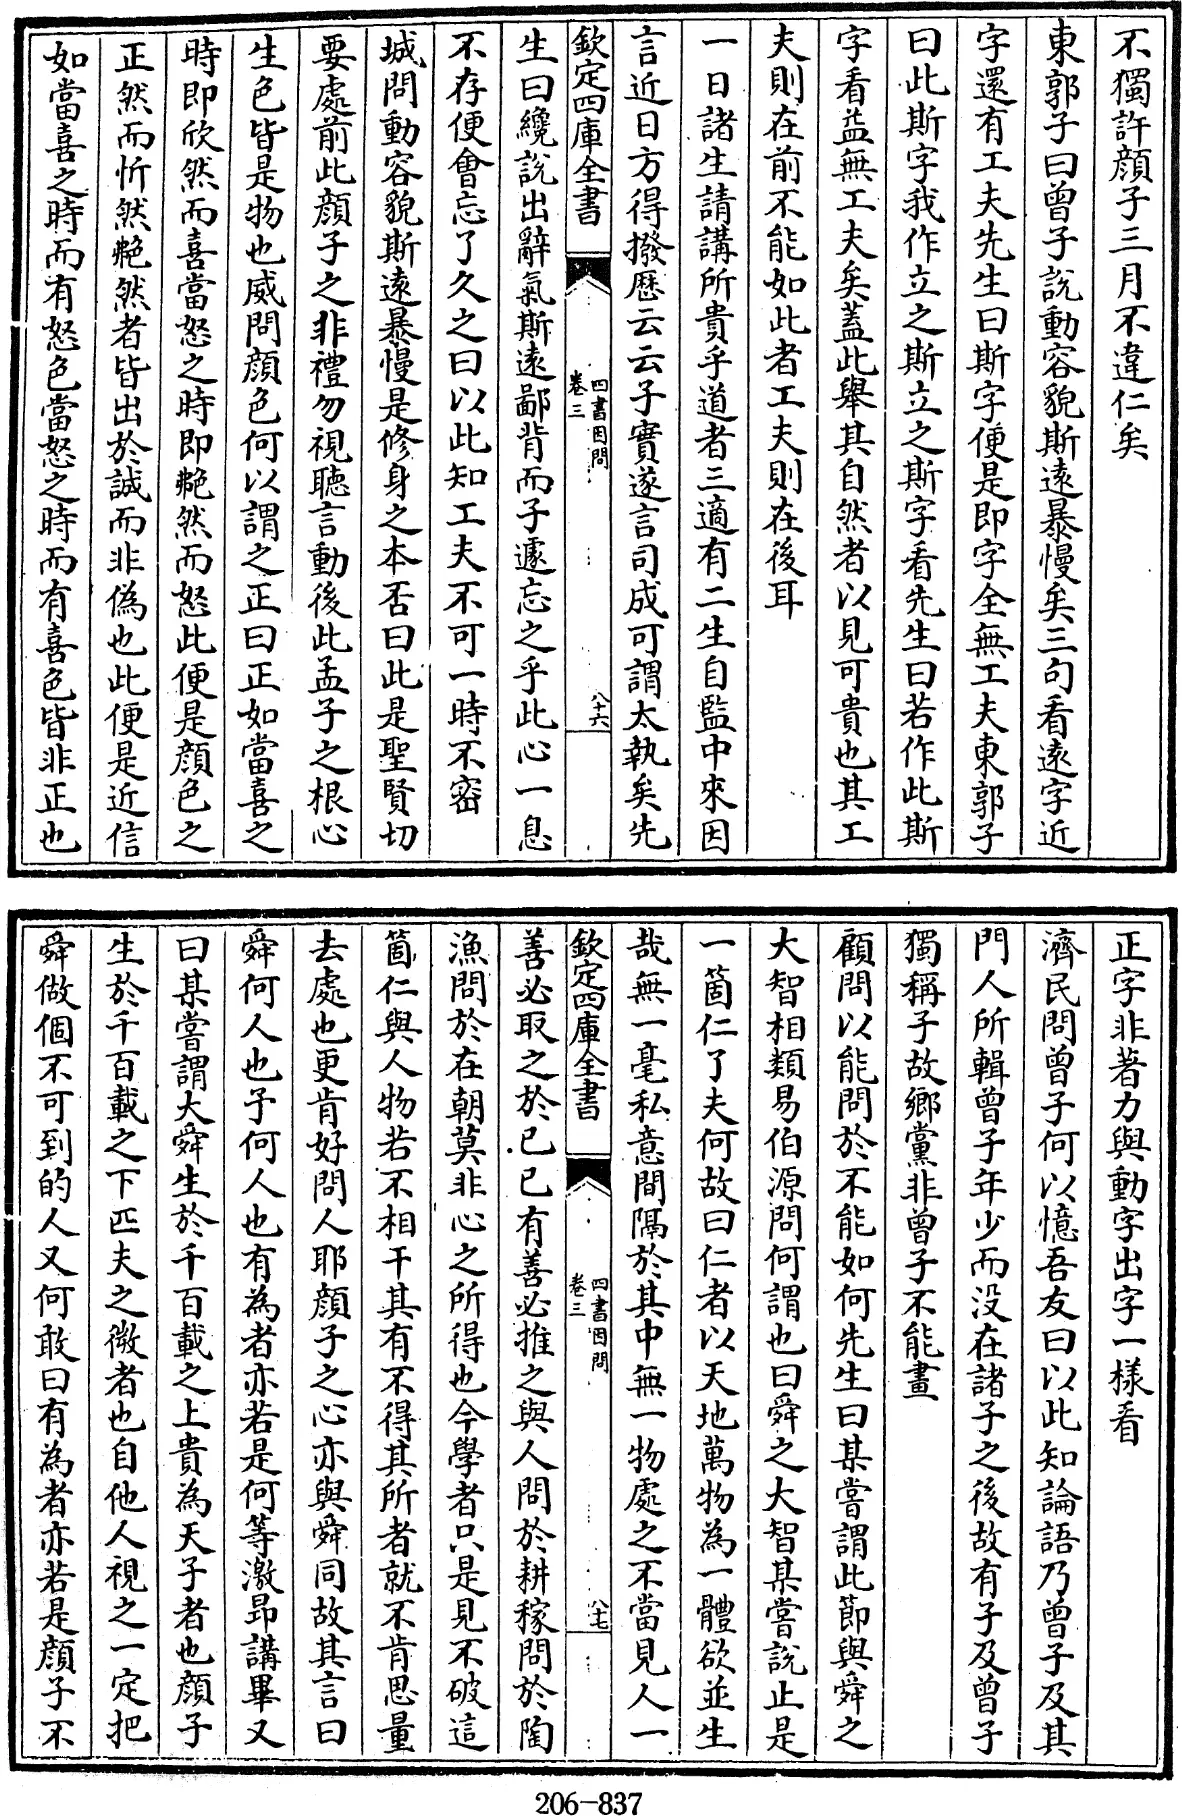 不獨許顔子三月不違仁矣
東郭子曰曾子說動容貌斯遠暴慢矣三句看遠字近
字還有工夫先生曰斯字便是即字全無工夫東郭子
曰此斯字我作立之斯立之斯字看先生曰若作此斯
字看益無工夫矣蓋此舉其自然者以見可貴也其工
夫則在前不能如此者工夫則在後耳
一日諸生請講所貴乎道者三適有二生自監中來因
言近日方得撥歷云云子實遂言司成可謂太執矣先
欽定四庫全書
四書因問
卷三
八十六
生曰纔說出辭氣斯遠鄙背而子遽忘之乎此心一息
不存便會忘了久之曰以此知工夫不可一時不密
城問動容貌斯遠暴慢是修身之本否曰此是聖賢切
要處前此顔子之非禮勿視聽言動後此孟子之根心
生色皆是物也威問顔色何以謂之正曰正如當喜之
時即欣然而喜當怒之時即艴然而怒此便是顔色之
正然而忻然艴然者皆出於誠而非偽也此便是近信
如當喜之時而有怒色當怒之時而有喜色皆非正也
正字非著力與動字出字一樣看
濟民問曾子何以憶吾友曰以此知論語乃曾子及其
門人所輯曾子年少而沒在諸子之後故有子及曾子
獨稱子故鄉黨非曾子不能畫
顧問以能問於不能如何先生曰某嘗謂此節與舜之
大智相類易伯源問何謂也曰舜之大智某嘗說止是
一箇仁了夫何故曰仁者以天地萬物為一體欲並生
哉無一毫私意間隔於其中無一物處之不當見人一
欽定四庫全書
四書因問
卷三
八十七
善必取之於已已有善必推之與人問於耕稼問於陶
漁問於在朝莫非心之所得也今學者只是見不破這
箇仁與人物若不相干其有不得其所者就不肯思量
去處也更肯好問人耶顔子之心亦與舜同故其言曰
舜何人也予何人也有為者亦若是何等激昂講畢又
曰某嘗謂大舜生於千百載之上貴為天子者也顔子
生於千百載之下匹夫之微者也自他人視之一定把
舜做個不可到的人又何敢曰有為者亦若是顔子不
206-837